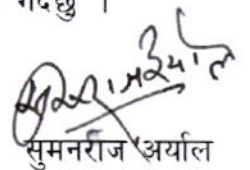 गर्दछु ।
सुमनराज अर्याल